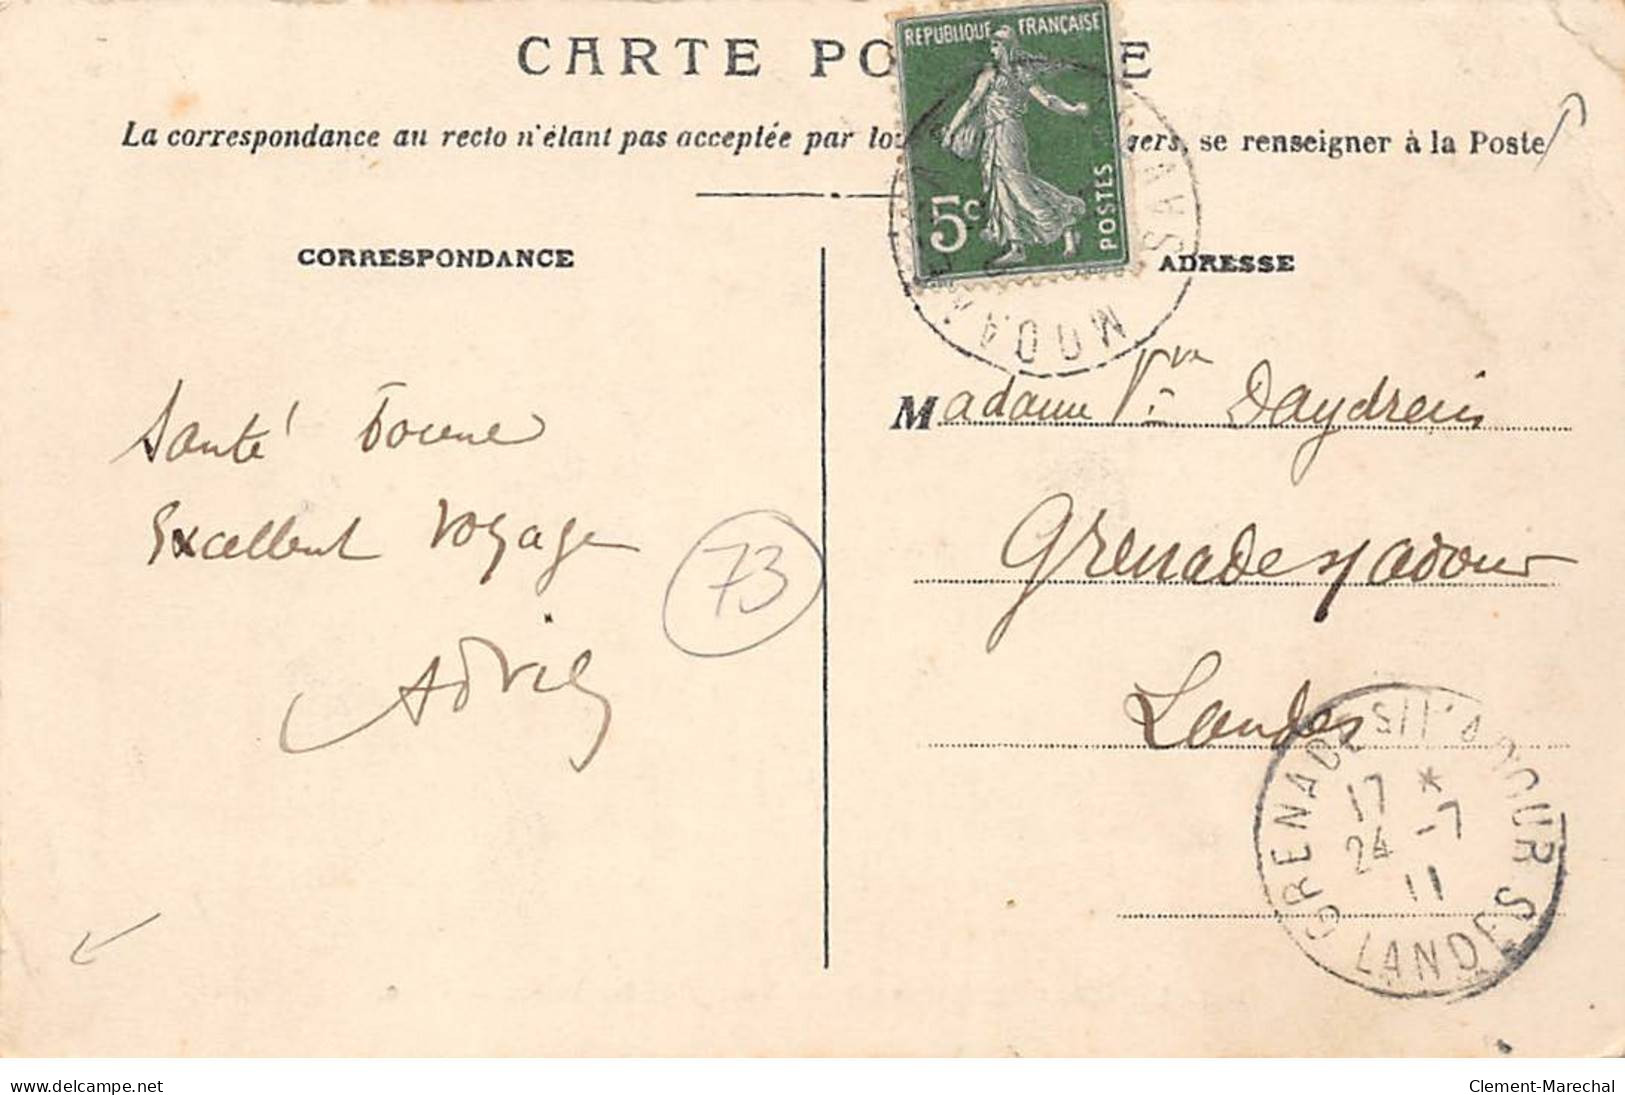 CARTE PO E
RÉPUBLIQUE FRANÇAISE
5c
POSTES
La correspondance au recto n'étant pas acceptée par to gers, se renseigner à la Poste
CORRESPONDANCE
ADRESSE
Santé bonne
Excellent voyage
73
Madame Vve Daydrein
Grenade s/ adour
Landes
GRENADE S/L'ADOUR
17 *
24 -7
11
LANDES
www.delcampe.net
Clement-Marechal